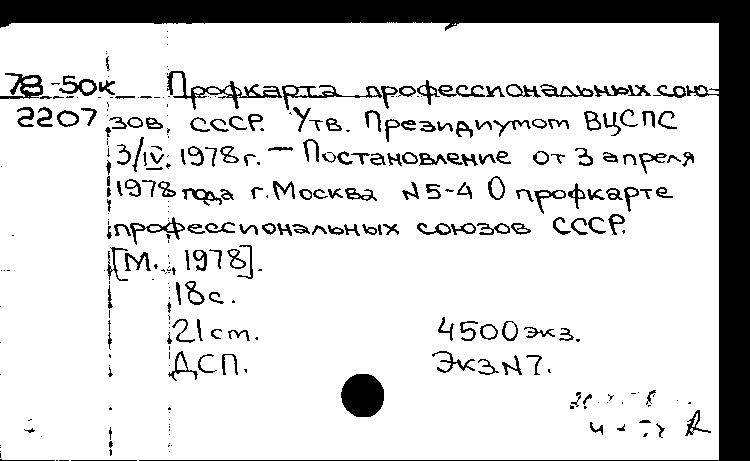 78-50к Профкарта профессиональных сою-
2207 зов СССР. Утв. Президиумом ВЦСПС
3/IV. 1978г. — Постановление от 3 апреля
1978 года г. Москва N5-4 О профкарте
профессиональных союзов СССР.
[М., 1978].
18с.
21см. 4500экз.
ДСП. Экз.N7.